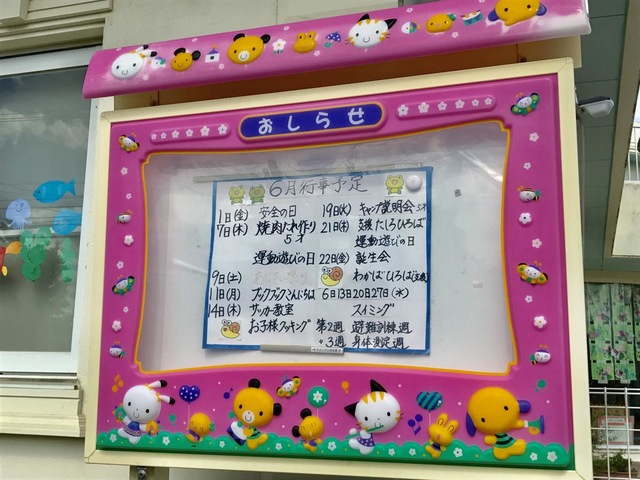 おしらせ
6月行事予定
1日(金) 安全の日
7日(木) 焼肉たれ作り
5才
運動遊びの日
9日(土)
11日(月) ブックブックこんにちは
14日(木) サッカー教室
お子様クッキング
19日(火) キャンプ説明会 5才
21日(木) 交援たしろひろば
運動遊びの日
22日(金) 誕生会
わかばひろば
6日13日20日27日(水)
スイミング
第2週 避難訓練週
〃3週 身体測定週